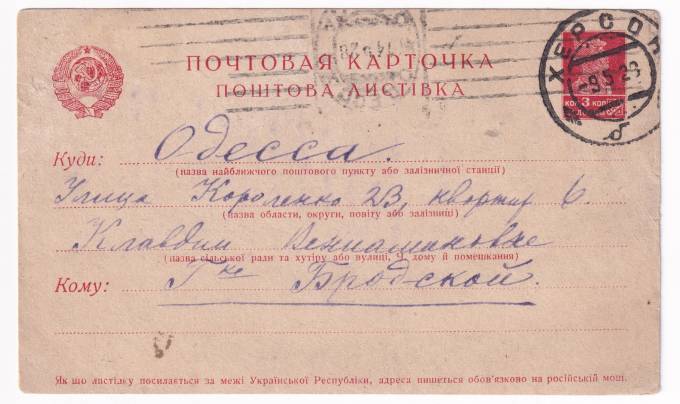 ПОЧТОВАЯ КАРТОЧКА
ПОШТОВА ЛИСТІВКА
ХЕРСОН
-9.5.26
КОП 3 КОП
Куди: Одесса.
(назва найближчого поштового пункту або залізничної станції)
Улица Короленко 23, квартир 6.
(назва области, округи, повіту або залізниці)
Клавдии Вениаминовне
(назва сільської ради та хутіру або вулиці, Ч. дому й помешкання)
Кому: Г-же Бродской.
Як що листівку посилається за межі Української Республіки, адреса пишеться обов'язково на російській мові.